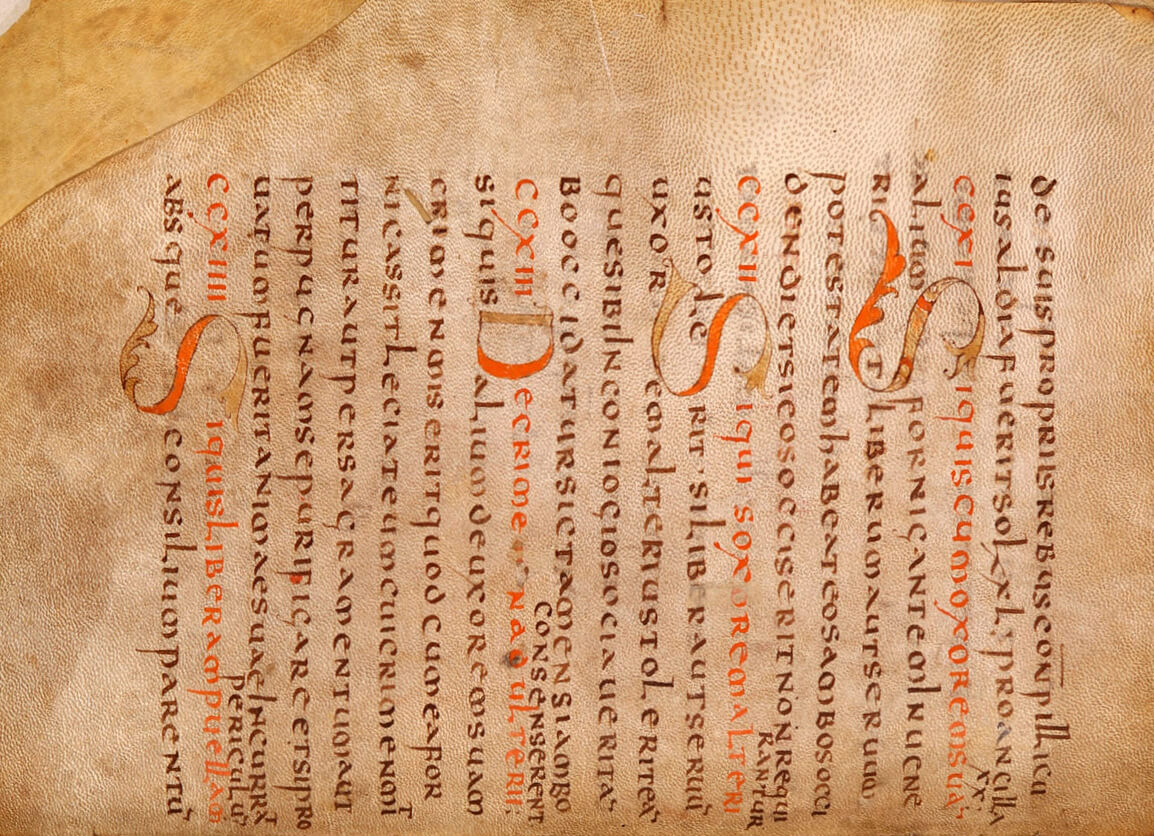 de suis propriis rebus con̄pillicu
ius aldia fuerit sol xl; pro ancilla
xx;
CCXI Si quis cum oxorem sua
alium fornicantem inuene
rit liberum aut seruum
potestatem habeat eos ambos occi
dendi et si eos occiserit non requi
rantur
CCXII Si quis oxorem alteri
us tolerit · si liber aut seruū
uxorem alterius tolerit ea
que sibi in coniogio sociauerit a
bo occidatur sic tamen si ambo
consenserent
CCXIII De crimen adulterii;
si quis alium de uxorem suam
crimen miserit quod cum ea for
nicassit leciat eum cui crimen mit
titur aut per sacramentum aut
per pugnam se purificare et si pro
uatum fuerit animae suae incurrat
periculū
CCXIIII Si quis liberam puellam
absque consilium parentū